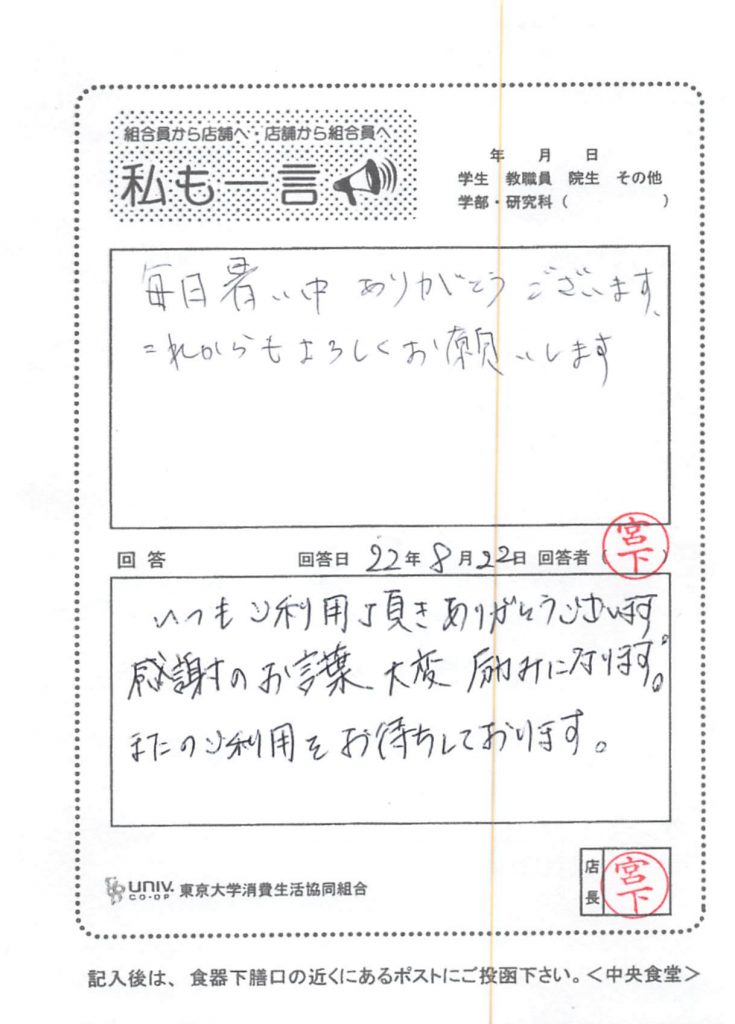 組合員から店舗へ・店舗から組合員へ
私も一言
年 月 日
学生 教職員 院生 その他
学部・研究科( )
毎日暑い中 ありがとうございます、
これからもよろしくお願いします
回答 回答日 22年8月22日 回答者(宮下)
いつもご利用頂きありがとうございます。
感謝のお言葉、大変 励みになります。
またのご利用をお待ちしております。
UNIV. CO-OP 東京大学消費生活協同組合
店長 宮下
記入後は、食器下膳口の近くにあるポストにご投函下さい。<中央食堂>